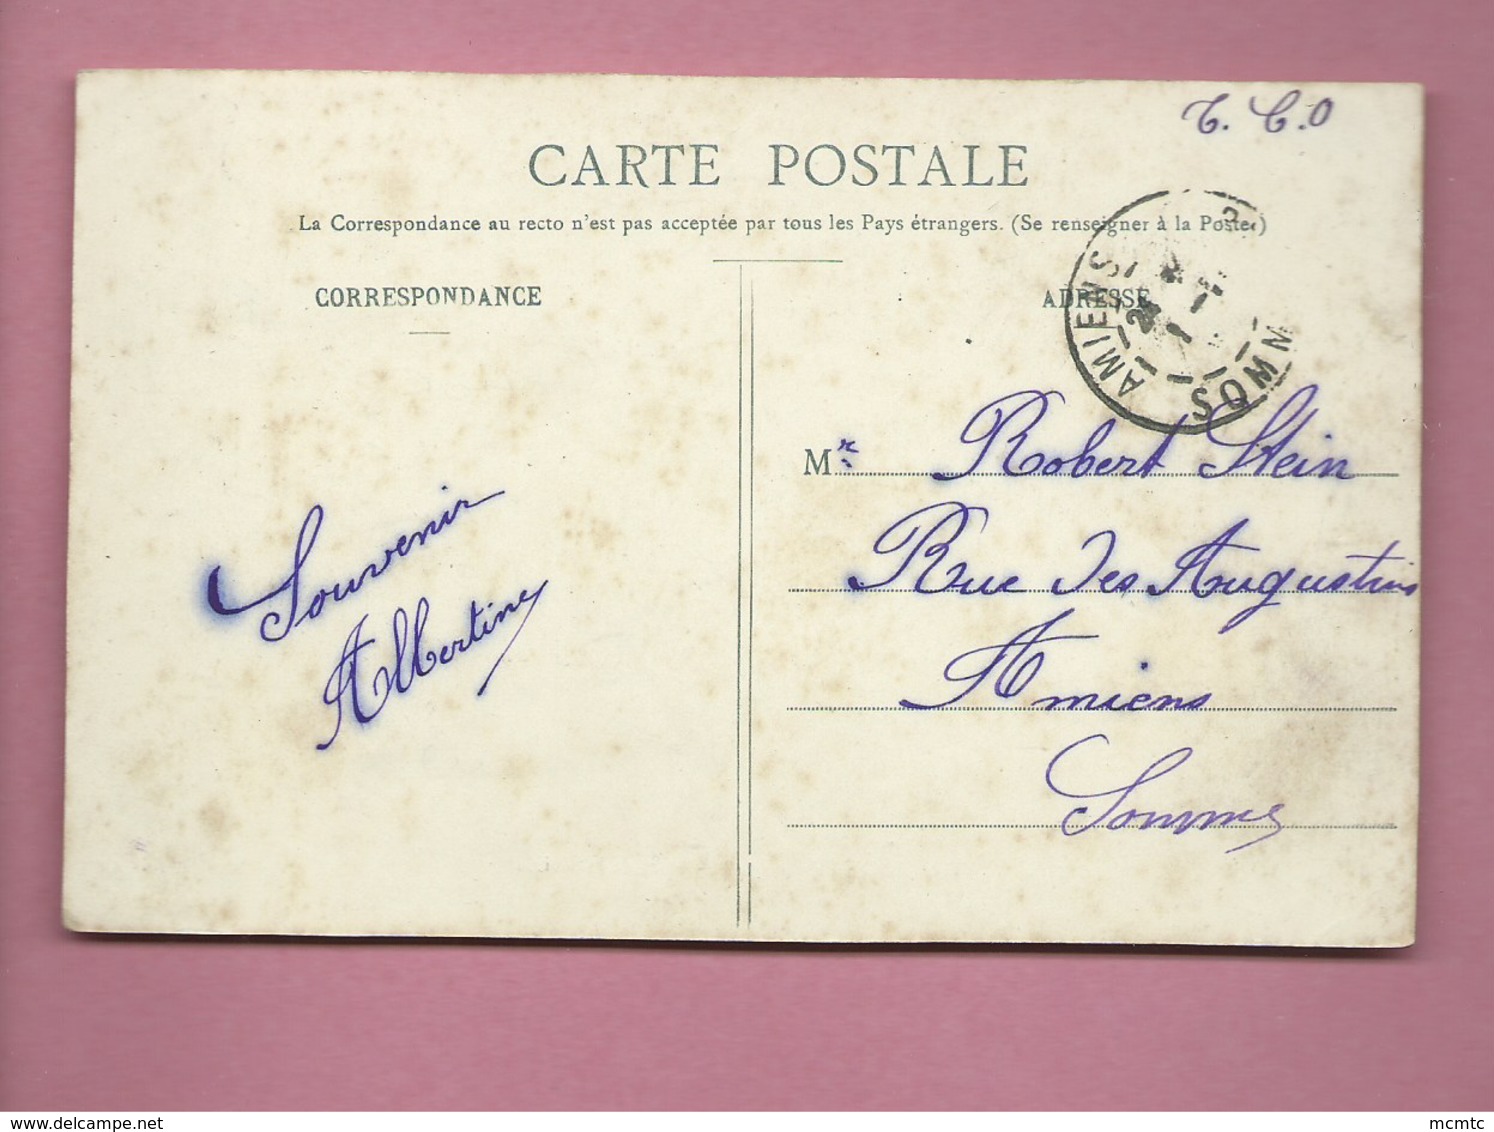 T. C. O
CARTE POSTALE
La Correspondance au recto n'est pas acceptée par tous les Pays étrangers. (Se renseigner à la Poste.)
CORRESPONDANCE
ADRESSE
AMIENS
SOMM
Mr Robert Stein
Rue des Augustins
Amiens
Somme
Souvenir
Albertine
www.delcampe.net
mcmtc